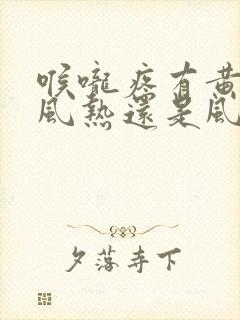 喉嚨疼有黃
風熱還是風
夕落寺下